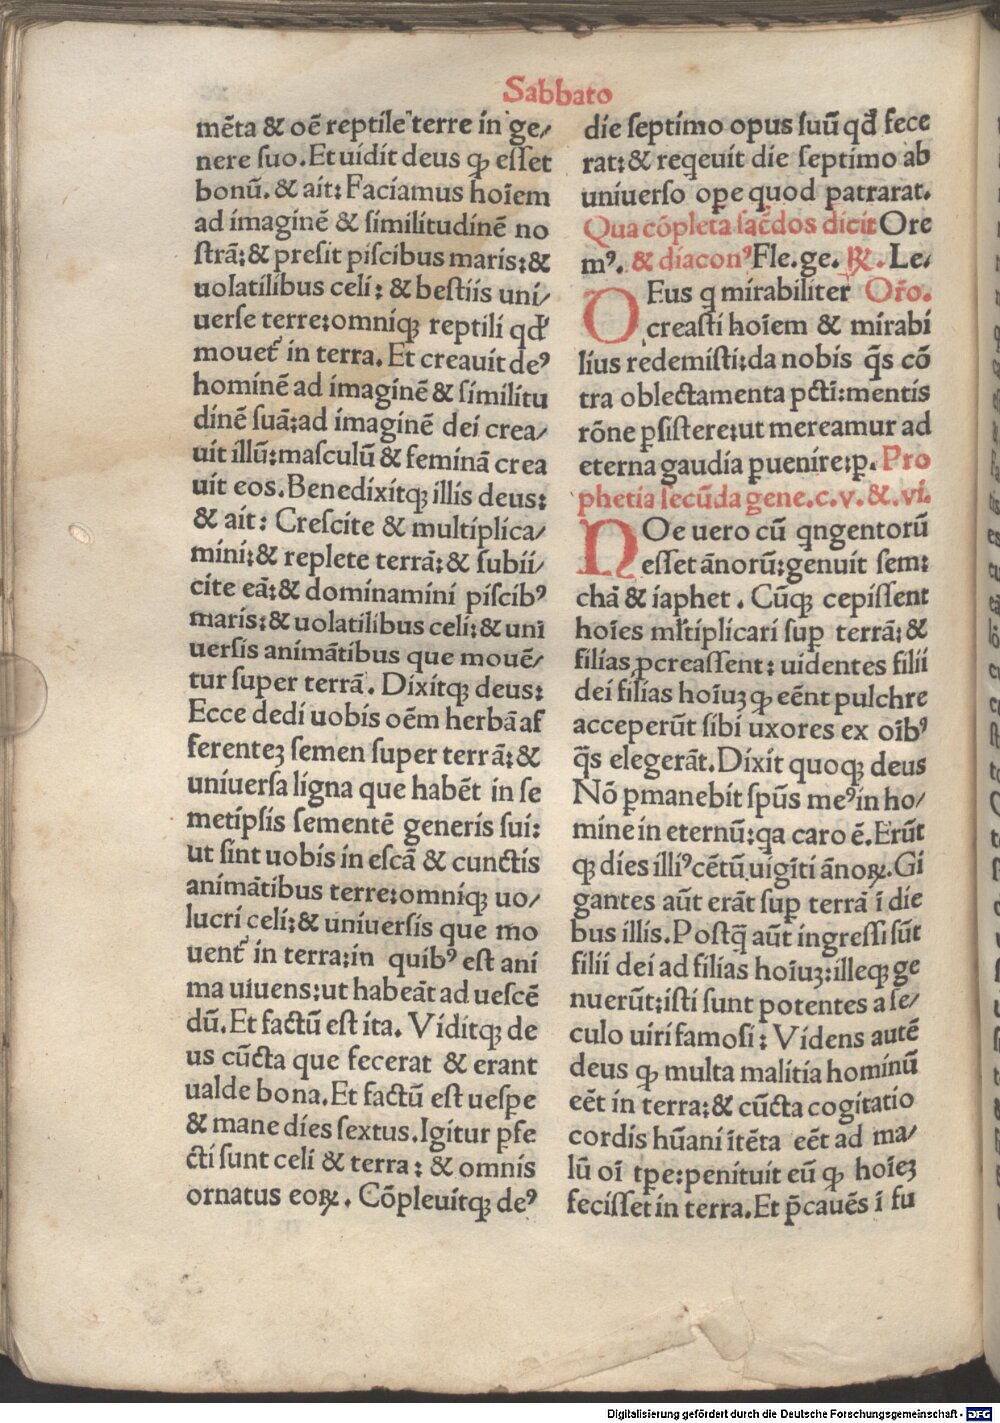 Sabbato
mēta & oē reptile terre in ge/
nere suo. Et uidit deus ꝙ esset
bonū. & ait: Faciamus hoīem
ad imaginē & similitudinē no
strā: & presit piscibus maris: &
uolatilibus celi: & bestiis uni/
uerse terre: omniqꝫ reptili qđ
mouet᷑ in terra. Et creauit deꝰ
hominē ad imaginē & similitu
dinē suā: ad imaginē dei crea/
uit illū: masculū & feminā crea
uit eos. Benedixitqꝫ illis deus:
& ait: Crescite & multiplica/
mini: & replete terrā: & subii/
cite eā: & dominamini piscibꝰ
maris: & uolatilibus celi: & uni
uersis animātibus que mouē/
tur super terrā. Dixitqꝫ deus:
Ecce dedi uobis oēm herbā af
ferenteꝫ semen super terrā: &
uniuersa ligna que habēt in se
metipsis sementē generis sui:
ut sint uobis in escā & cunctis
animātibus terre: omniqꝫ uo/
lucri celi: & uniuersis que mo
uent᷑ in terra: in quibꝰ est ani
ma uiuens: ut habeāt ad uescē
dū. Et factū est ita. Viditqꝫ de
us cūcta que fecerat & erant
ualde bona. Et factū est uesꝑe
& mane dies sextus. Igitur ꝑfe
cti sunt celi & terra: & omnis
ornatus eoꝝ. Cōpleuitqꝫ deꝰ
die septimo opus suū qđ fece
rat: & reqeuit die septimo ab
uniuerso oꝑe quod patrarat.
Qua cōpleta sac̄dos dicit Ore
mꝰ. & diaconꝰ Fle. ge. ℟. Le.
DEus q mirabiliter Or̄o.
creasti hoīem & mirabi
lius redemisti: da nobis q̄s cō
tra oblectamenta pcti: mentis
rōne ꝑsistere: ut mereamur ad
eterna gaudia ꝑuenire: p. Pro
phetia secūda gene. c. v. & vi.
NOe uero cū qngentorū
esset ānorū: genuit sem:
chā & iaphet. Cūqꝫ cepissent
hoīes ml̄tiplicari suꝑ terrā: &
filias ꝓcreassent: uidentes filii
dei filias hoīuꝫ ꝙ eēnt pulchre
acceperūt sibi uxores ex oībꝰ
q̄s elegerāt. Dixit quoqꝫ deus
Nō ꝑmanebit spūs meꝰ in ho/
mine in eternū: qa caro ē. Erūt
qꝫ dies illiꝰ cētū uigīti ānoꝝ. Gi
gantes aūt erāt suꝑ terrā ī die
bus illis. Postq̄ aūt ingressi sūt
filii dei ad filias hoīuꝫ: illeqꝫ ge
nuerūt: isti sunt potentes a se/
culo uiri famosi: Videns autē
deus ꝙ multa malitia hominū
eēt in terra: & cūcta cogitatio
cordis hūani ītēta eēt ad ma/
lū oī tꝑe: penituit eū ꝙ hoīeꝫ
fecisset in terra. Et p̄cauēs ī fu
Digitalisierung gefördert durch die Deutsche Forschungsgemeinschaft - DFG